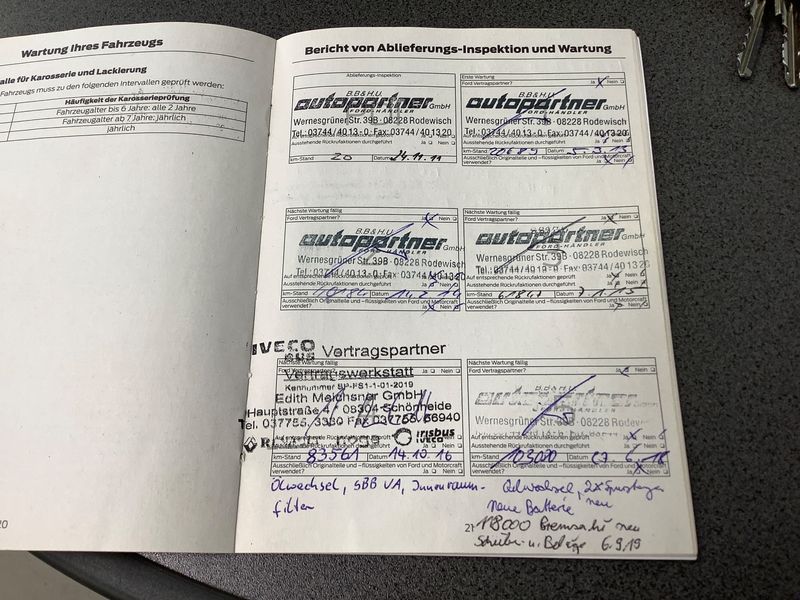 Wartung Ihres Fahrzeugs
alle für Karosserie und Lackierung
Fahrzeugs muss zu den folgenden Intervallen geprüft werden:
Häufigkeit der Karosserieprüfung
Fahrzeugalter bis 6 Jahre: alle 2 Jahre
Fahrzeugalter ab 7 Jahre: jährlich
jährlich
20
Bericht von Ablieferungs-Inspektion und Wartung
Ablieferungs-Inspektion
B.B.& H.U.
autopartner GmbH
FORD-HÄNDLER
Wernesgrüner Str. 39B · 08228 Rodewisch
Tel.: 03744 / 40 13 - 0 · Fax: 03744 / 40 13 20
Ausstehende Rückrufaktionen durchgeführt Ja Nein
km-Stand 20 Datum 24.11.11
Erste Wartung
Ford Vertragspartner? Ja Nein
B.B.& H.U.
autopartner GmbH
FORD-HÄNDLER
Wernesgrüner Str. 39B · 08228 Rodewisch
Tel.: 03744 / 40 13 - 0 · Fax: 03744 / 40 13 20
Ausstehende Rückrufaktionen durchgeführt Ja Nein
km-Stand Datum
Ausschließlich Originalteile und –flüssigkeiten von Ford und Motorcraft
verwendet? Ja Nein
Nächste Wartung fällig
Ford Vertragspartner? Ja Nein
B.B.& H.U.
autopartner GmbH
FORD-HÄNDLER
Wernesgrüner Str. 39B · 08228 Rodewisch
Tel.: 03744 / 40 13 - 0 · Fax: 03744 / 40 13 20
Auf entsprechende Rückrufaktionen geprüft Ja Nein
Ausstehende Rückrufaktionen durchgeführt Ja Nein
km-Stand Datum
Ausschließlich Originalteile und –flüssigkeiten von Ford und Motorcraft
verwendet? Ja Nein
Nächste Wartung fällig
Ford Vertragspartner? Ja Nein
autopartner GmbH
FORD-HÄNDLER
Wernesgrüner Str. 39B · 08228 Rodewisch
Tel.: 03744 / 40 13 - 0 · Fax: 03744 / 40 13 20
Auf entsprechende Rückrufaktionen geprüft Ja Nein
Ausstehende Rückrufaktionen durchgeführt Ja Nein
km-Stand Datum
Ausschließlich Originalteile und –flüssigkeiten von Ford und Motorcraft
verwendet? Ja Nein
IVECO BUS Vertragspartner
Nächste Wartung fällig
Ford Vertragspartner? Ja Nein
Vertragswerkstatt
Edith Meichsner GmbH
Hauptstraße 47 08304 Schönheide
Tel. 037755/3330 Fax 037755/56940
irisbus
IVECO
Ausstehende Rückrufaktionen durchgeführt Ja Nein
km-Stand 83561 Datum 14.10.16
Ausschließlich Originalteile und –flüssigkeiten von Ford und Motorcraft
verwendet? Ja Nein
Ölwechsel, SBB VA, Innenraum-
filter
Nächste Wartung fällig
Ford Vertragspartner? Ja Nein
B.B.& H.U.
FORD-HÄNDLER
Wernesgrüner Str. 39B · 08228 Rodewisch
Tel.: 03744 / 40 13 - 0 · Fax: 03744 / 40 13 20
Auf entsprechende Rückrufaktionen geprüft Ja Nein
Ausstehende Rückrufaktionen durchgeführt Ja Nein
km-Stand Datum
Ausschließlich Originalteile und –flüssigkeiten von Ford und Motorcraft
verwendet? Ja Nein
Oelwechsel, 2x neu
neue Batterie
21
118000 neu
Scheiben u. Beläge 6.9.19